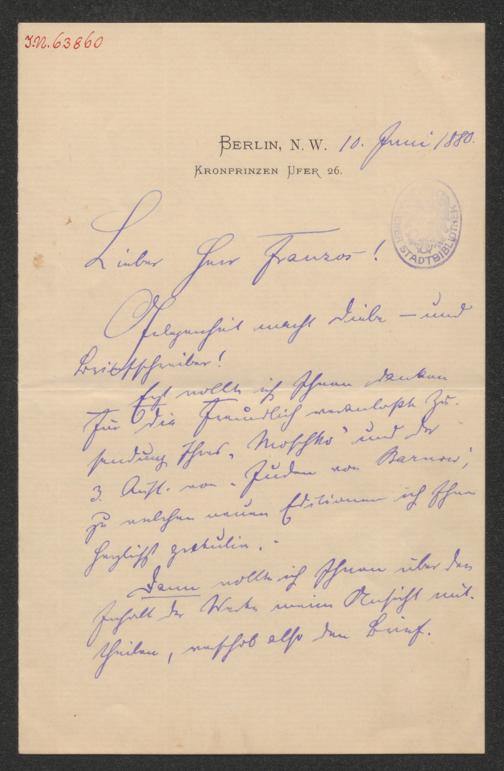 I.N. 63860
BERLIN, N. W. 10. Juni 1880.
KRONPRINZEN UFER 26.
STADTBIBLIOTHEK
Lieber Herr Franzos!
Gelegenheit macht Diebe — und
Briefschreiber!
Erst wollte ich Ihnen danken
für die freundlich veranlaßte Zu-
sendung Ihres „Moschko" und der
3. Aufl. von „Juden von Barnow",
zu welchen neuen Editionen ich Ihnen
herzlichst gratulire. -
Dann wollte ich Ihnen über den
Inhalt der Werke meine Ansicht mit-
theilen, verschob also den Brief.